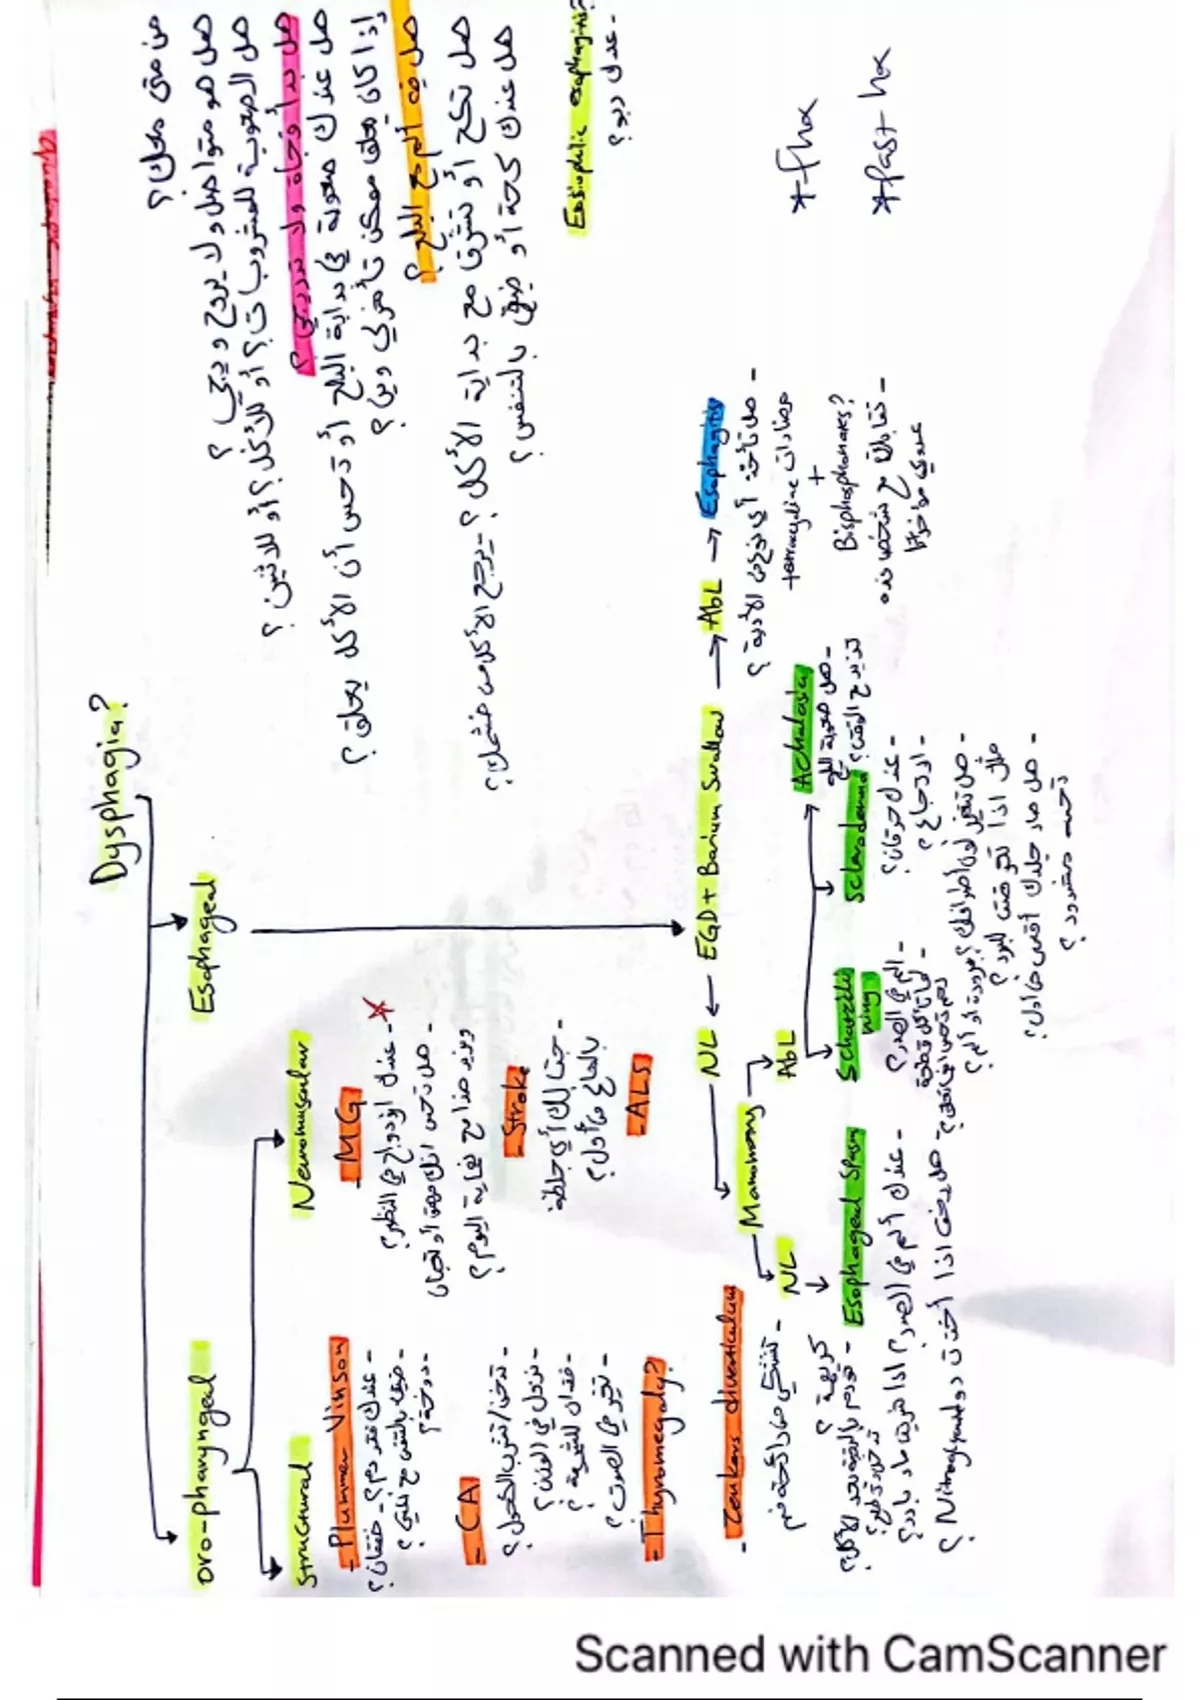 Dysphagia?
من متى معك؟
هل هو متواصل ولا يروح ويجي؟
هل الصعوبة للمشروبات؟ أو للأكل؟ أو للاثنين؟
هل بدأ فجأة ولا تدريجي؟
هل عندك صعوبة في بداية البلع أو تحس أن الأكل يعلق؟
إذا كان يعلق ممكن تأشر لي وين؟
هل فيه ألم مع البلع؟
هل تكح أو تشرق مع بداية الأكل؟ - يرجع الأكل من خشمك؟
هل عندك كحة أو ضيق بالتنفس؟
Eosiophilic esophagitis
- عندك ربو؟
* fhx
* past hx
oro-pharyngeal
Esophageal
Structural
Neuromuscular
- Plummer Vinson
- عندك فقر دم؟ - خفقان؟
- ضيق بالتنفس مع المشي؟
- دوخة؟
- CA
- تدخن/تشرب الكحول؟
- نزول في الوزن؟
- فقدان للشهية؟
- تغير في الصوت؟
- Thyromegaly?
- Zenkers diverticulum
- تشتكي من رائحة فم
كريهة؟
- MG
- عندك ازدواج في النظر؟
- هل تحس انك مرهق أو تعبان
ويزيد مع نهاية اليوم؟
- Stroke
- جتا لك أي جلطة
بالدماغ من أول؟
- ALS
NL ← EGD + Barium Swallow → AbL → Esophagitis
- هل تأخذ أي نوع من الأدوية؟
مضادات tetracycline
+
Bisphosphonates?
- تقابلت مع شخص عنده
عدوى مؤخرا
Manometry
NL
AbL
Esophageal Spasm
- عندك ألم في الصدر؟ اذا شربت ماء بارد؟
- هل يخف اذا أخذت دواء Nitroglycerin؟
Schatzki
ring
Scleroderma
- عندك حرقان؟
- ارتجاع؟
- هل تغير لون أطرافك؟ برودة أو ألم؟
مثلا اذا تعرضت لبرد؟
- هل صار جلدك أقسى من أول؟
تحسه مشدود؟
Achalasia
- هل صعوبة البلع
تزيد مع الوقت؟
Scanned with CamScanner